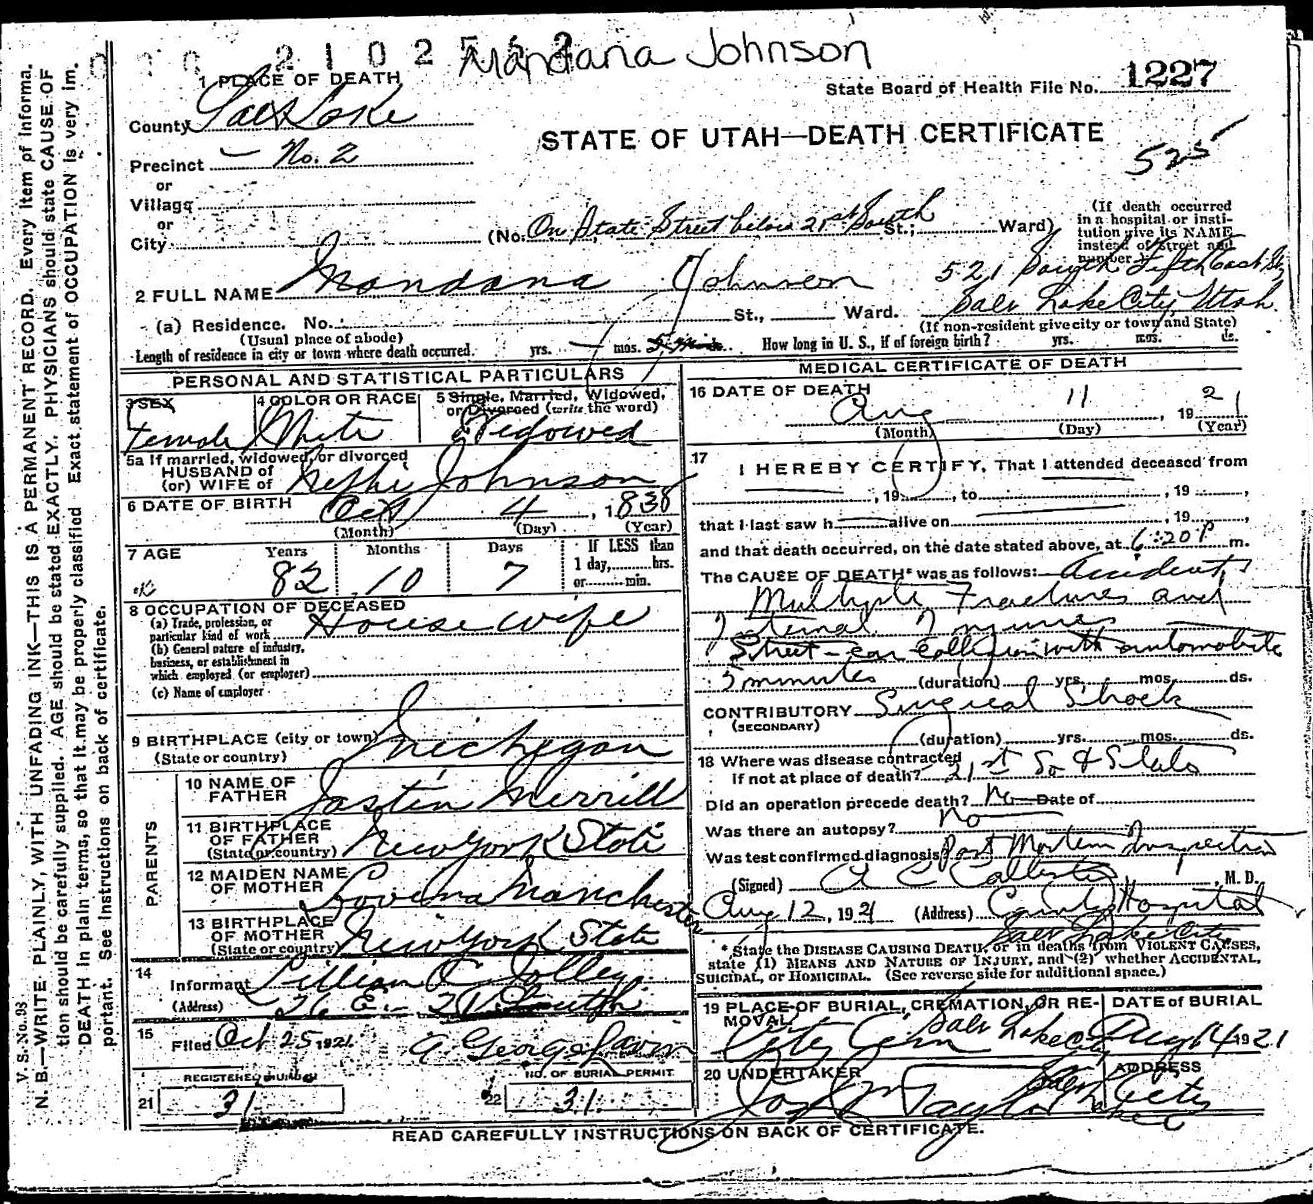 2102552
Mandana Johnson
1 PLACE OF DEATH
State Board of Health File No. 1227
County Salt Lake
STATE OF UTAH—DEATH CERTIFICATE
525
Precinct No. 2
or
Village
or
City
(No. On State Street below 21st South St.; Ward)
(If death occurred in a hospital or institution give its NAME instead of street and number.)
2 FULL NAME Mandana Johnson
521 South Fifth East St
Salt Lake City, Utah.
(a) Residence. No. St., Ward.
(Usual place of abode)
(If non-resident give city or town and State)
Length of residence in city or town where death occurred. yrs. mos. How long in U. S., if of foreign birth? yrs. mos. ds.
PERSONAL AND STATISTICAL PARTICULARS
3 SEX
Female
4 COLOR OR RACE
White
5 Single, Married, Widowed, or Divorced (write the word)
Widowed
5a If married, widowed, or divorced
HUSBAND of
(or) WIFE of Nephi Johnson
6 DATE OF BIRTH Oct 4, 1838
(Month) (Day) (Year)
7 AGE Years Months Days If LESS than
82 10 7 1 day, hrs.
or min.
8 OCCUPATION OF DECEASED
(a) Trade, profession, or particular kind of work House wife
(b) General nature of industry, business, or establishment in which employed (or employer)
(c) Name of employer
9 BIRTHPLACE (city or town) Michegan
(State or country)
PARENTS
10 NAME OF FATHER Jastin Merrill
11 BIRTHPLACE OF FATHER New York State
(State or country)
12 MAIDEN NAME OF MOTHER Lovina Manchester
13 BIRTHPLACE OF MOTHER New York State
(State or country)
14
Informant Lillian C Jolley
(Address) 26 E. - 21 South
15
Filed Oct 25 1921
REGISTERED NUMBER
21 31
NO. OF BURIAL PERMIT
22 31
MEDICAL CERTIFICATE OF DEATH
16 DATE OF DEATH
Aug 11, 1921
(Month) (Day) (Year)
17
I HEREBY CERTIFY, That I attended deceased from
, 19 , to , 19 ,
that I last saw h alive on , 19 ,
and that death occurred, on the date stated above, at 6:20 P m.
The CAUSE OF DEATH* was as follows: Accident
Multiple Fractures and
Internal Injuries
Street-car Collision with automobile
5 minutes (duration) yrs. mos. ds.
CONTRIBUTORY Surgical Shock
(SECONDARY)
(duration) yrs. mos. ds.
18 Where was disease contracted
if not at place of death? 21st So & State
Did an operation precede death? No Date of
Was there an autopsy? No
Was test confirmed diagnosis Post Mortem Inspection
(Signed) A C Callister, M. D.
Aug 12, 1921 (Address) County Hospital
Salt Lake City
* State the DISEASE CAUSING DEATH, or in deaths from VIOLENT CAUSES,
state (1) MEANS AND NATURE OF INJURY, and (2) whether ACCIDENTAL,
SUICIDAL, or HOMICIDAL. (See reverse side for additional space.)
19 PLACE OF BURIAL, CREMATION, OR REMOVAL
City Cem Salt Lake City
DATE of BURIAL
Aug 14 1921
20 UNDERTAKER
Taylor
ADDRESS
Salt Lake City
READ CAREFULLY INSTRUCTIONS ON BACK OF CERTIFICATE.
V. S. No. 98
N. B.—WRITE PLAINLY, WITH UNFADING INK—THIS IS A PERMANENT RECORD. Every item of information should be carefully supplied. AGE should be stated EXACTLY. PHYSICIANS should state CAUSE OF DEATH in plain terms, so that it may be properly classified. Exact statement of OCCUPATION is very important. See instructions on back of certificate.